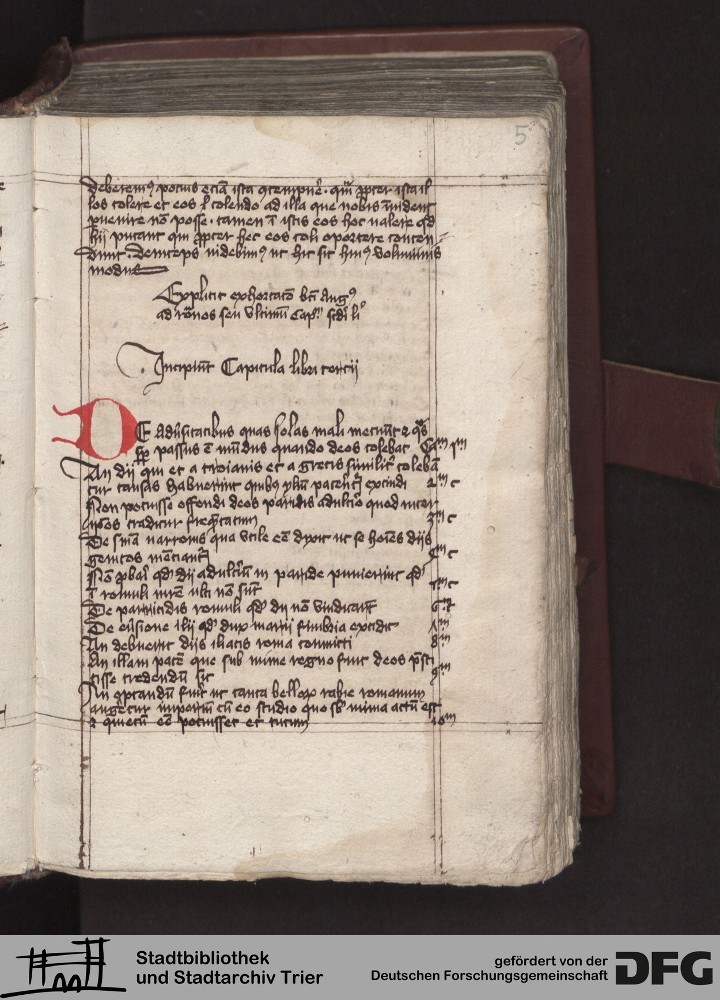 5
deberem⁹ pocius eciā ista ɔtempne᷑ · qm̄ ꝓpter ista il
los colere et eos ł colendo ad illa que nobis īuident
ꝑuenire nō posse · tamen ī istis eos hoc valere qd̄
hij putant qui ꝓpter hec eos coli oportere conten
dunt · Deinceps videbim⁹ vt hic sit hui⁹ voluminis
modus
Explicit exhortacō bt̄i Aug⁹
ad rōnos seu vltimū Cap̄m scd̄i li
Incipiūt Capitula libri tercij
DE adu̓sitatibus quas solas mali metuūt ⁊ q̄s
sꝑ passus ē mūdus quando deos colebat Cam pm
An dij qui et a troianis et a grecis similit̓ coleba
tur causas habuerint quib⁹ yliū paterēt̄ excindi 2m c
Non potuisse offendi deos paridis adulterio quod inter
ip̄os traditur freq̄ntatum 3m c
De sn̄ia varronis qua vtile eē dixit vt se hoīes dijs
genitos mēciant̄ 4m c
Nō ꝓbari qd̄ dij adulteriū in paride punierint qd̄
ī romuli mr̄e vlti nō sūt 5m c
De parricidio romuli qd̄ dij non vindicarūt 6m
De eu̓sione ilij qd̄ dux marij fimbria excidit 7m
An debuerit dijs iliacis roma committi 8m
An illam pacē que sub nume regno fuit deos p̄sti
tisse credendū sit 9m
An optandū fuit vt tanta belloꝝ rabie romanum
augetur imperiū cū eo studio quo sb̄ numa actū est
⁊ quietū eē potuisset et tutum 10m
Stadtbibliothek
und Stadtarchiv Trier
gefördert von der
Deutschen Forschungsgemeinschaft
DFG